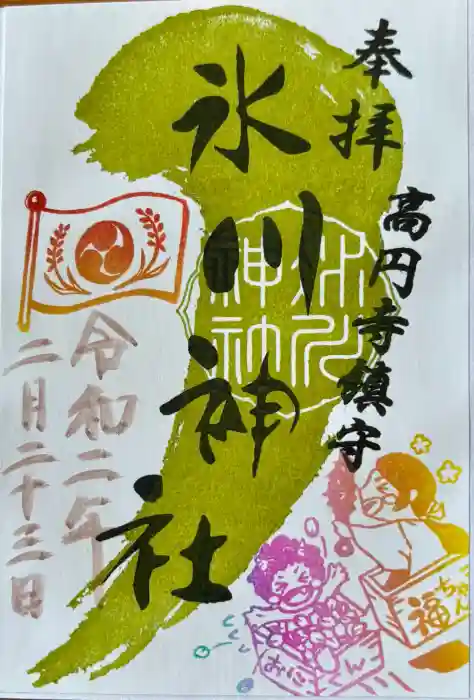 奉拝
高円寺鎮守
氷川神社
氷川
神社
令和二年
二月二十三日
おに
くん
福
ちゃん